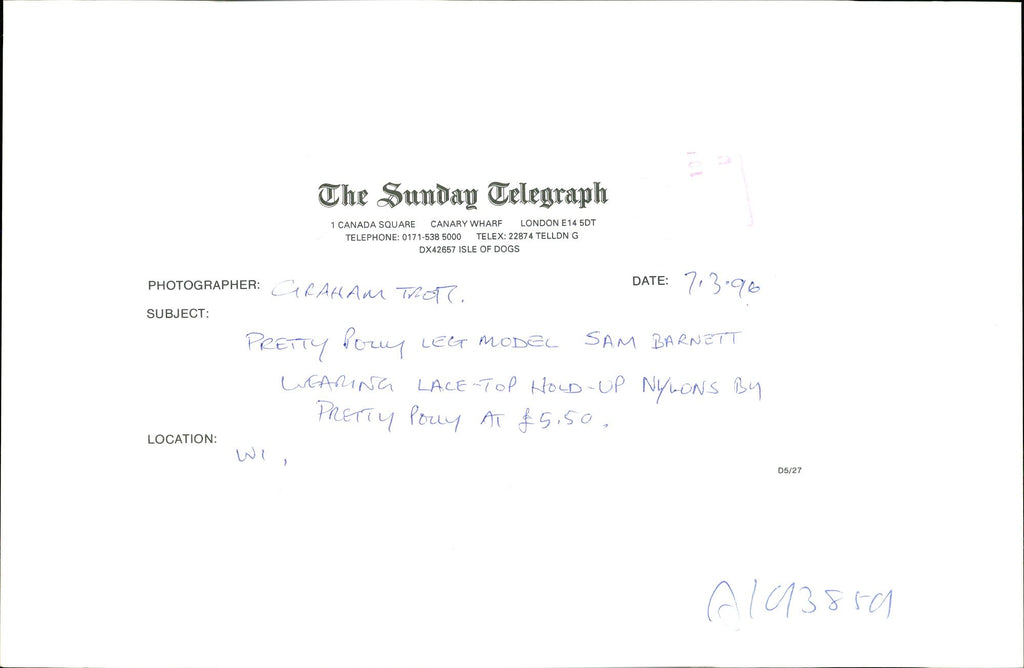 The Sunday Telegraph
1 CANADA SQUARE CANARY WHARF LONDON E14 5DT
TELEPHONE: 0171-538 5000 TELEX: 22874 TELLDN G
DX42657 ISLE OF DOGS
PHOTOGRAPHER: GRAHAM TROTT. DATE: 7.3.96
SUBJECT:
PRETTY POLLY LEG MODEL SAM BARNETT
WEARING LACE-TOP HOLD-UP NYLONS BY
PRETTY POLLY AT £5.50.
LOCATION:
W1,
D5/27